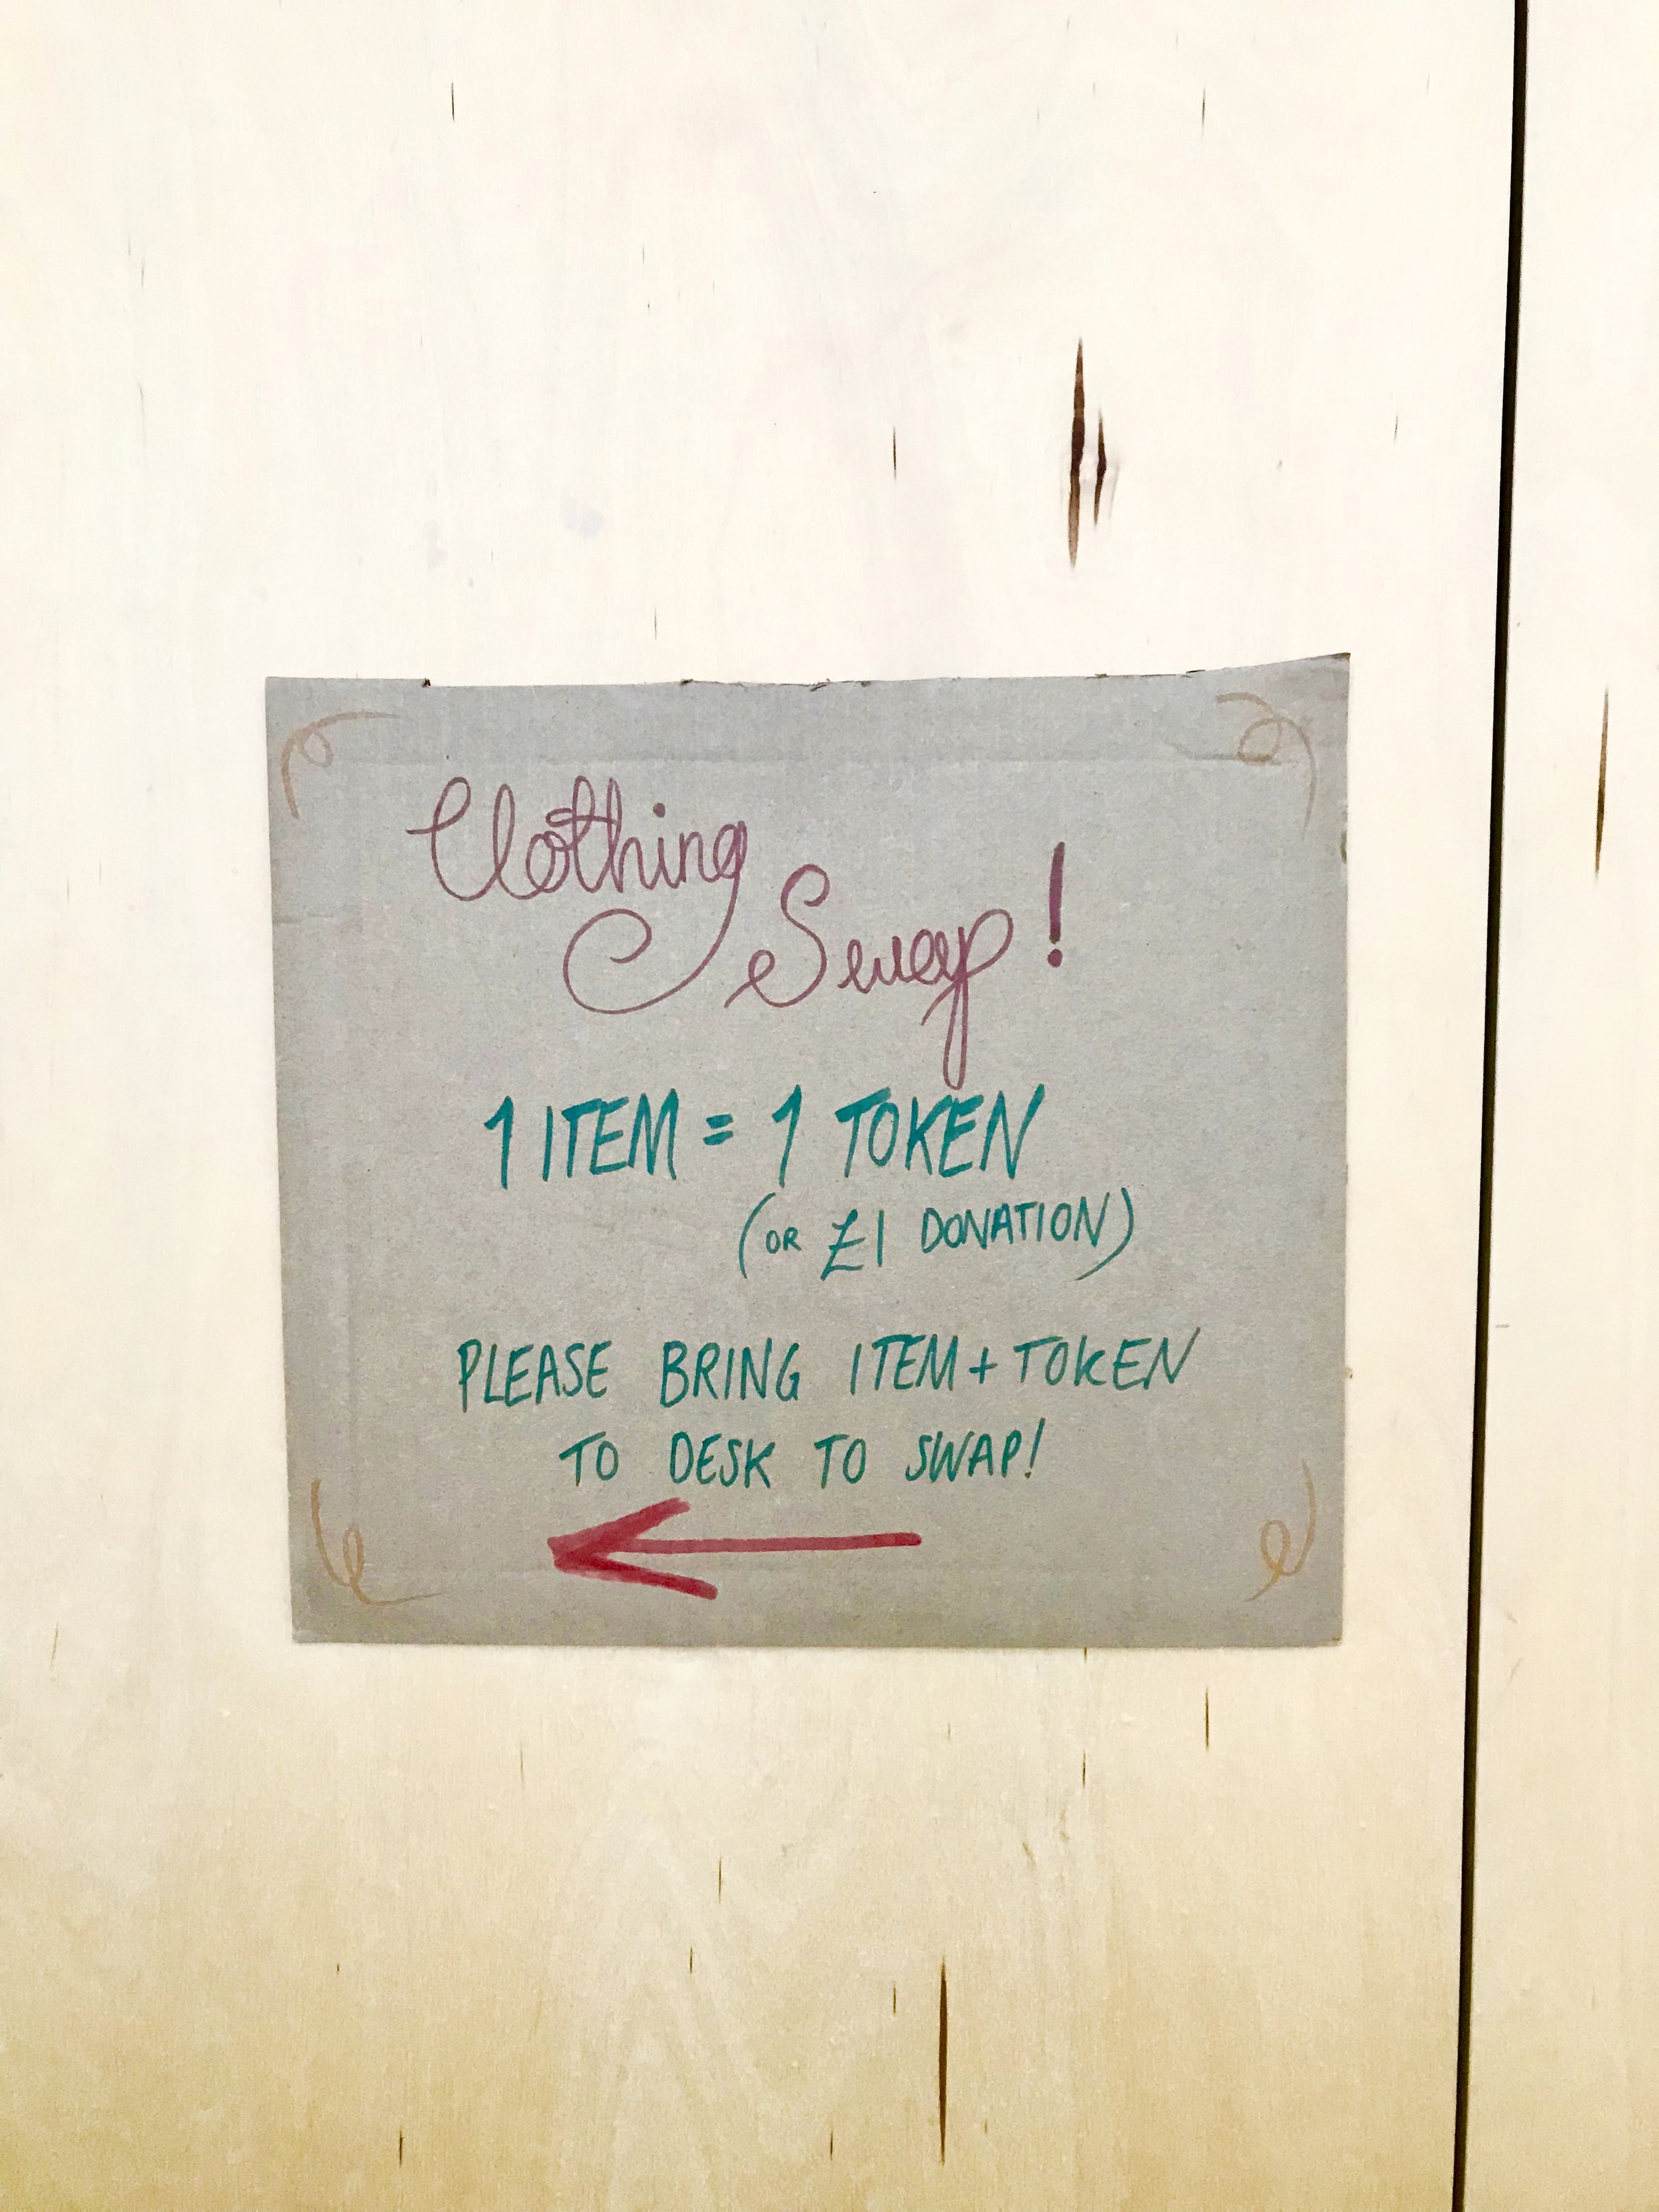 Clothing
Swap!
1 ITEM = 1 TOKEN
(OR £1 DONATION)
PLEASE BRING ITEM + TOKEN
TO DESK TO SWAP!